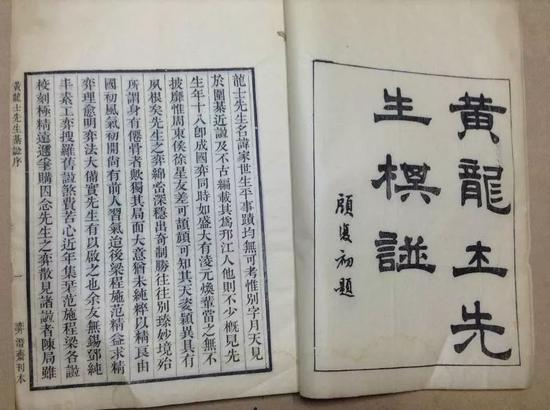 黃龍士先
生棋譜
顧復初題
龍士先生名諱家世生平事蹟均無可考惟別字月天見
於圍碁近譜及不古編載其爲邗江人他則不少槪見先
生年十八卽成國弈同時如盛大有凌元煥輩當之無不
披靡惟周東侯徐星友差可頡頏可知其天姿穎異具有
夙根矣先生之弈綿密深穩出奇制勝往往別臻妙境殆
所謂身有僊骨者歟獨其局面大意猶未純粹以精良由
國初風氣初開尙有前人習氣迨後梁程施范精益求精
弈理愈明弈法大備實先生有以啟之也余友無錫鄧純
丰素工弈搜羅舊譜煞費苦心近年集栞范施程梁各譜
校刻極精遐邇爭購因念先生之弈散見諸譜者陳局雖
黃龍士先生碁譜序
一
弈潛齋刊本